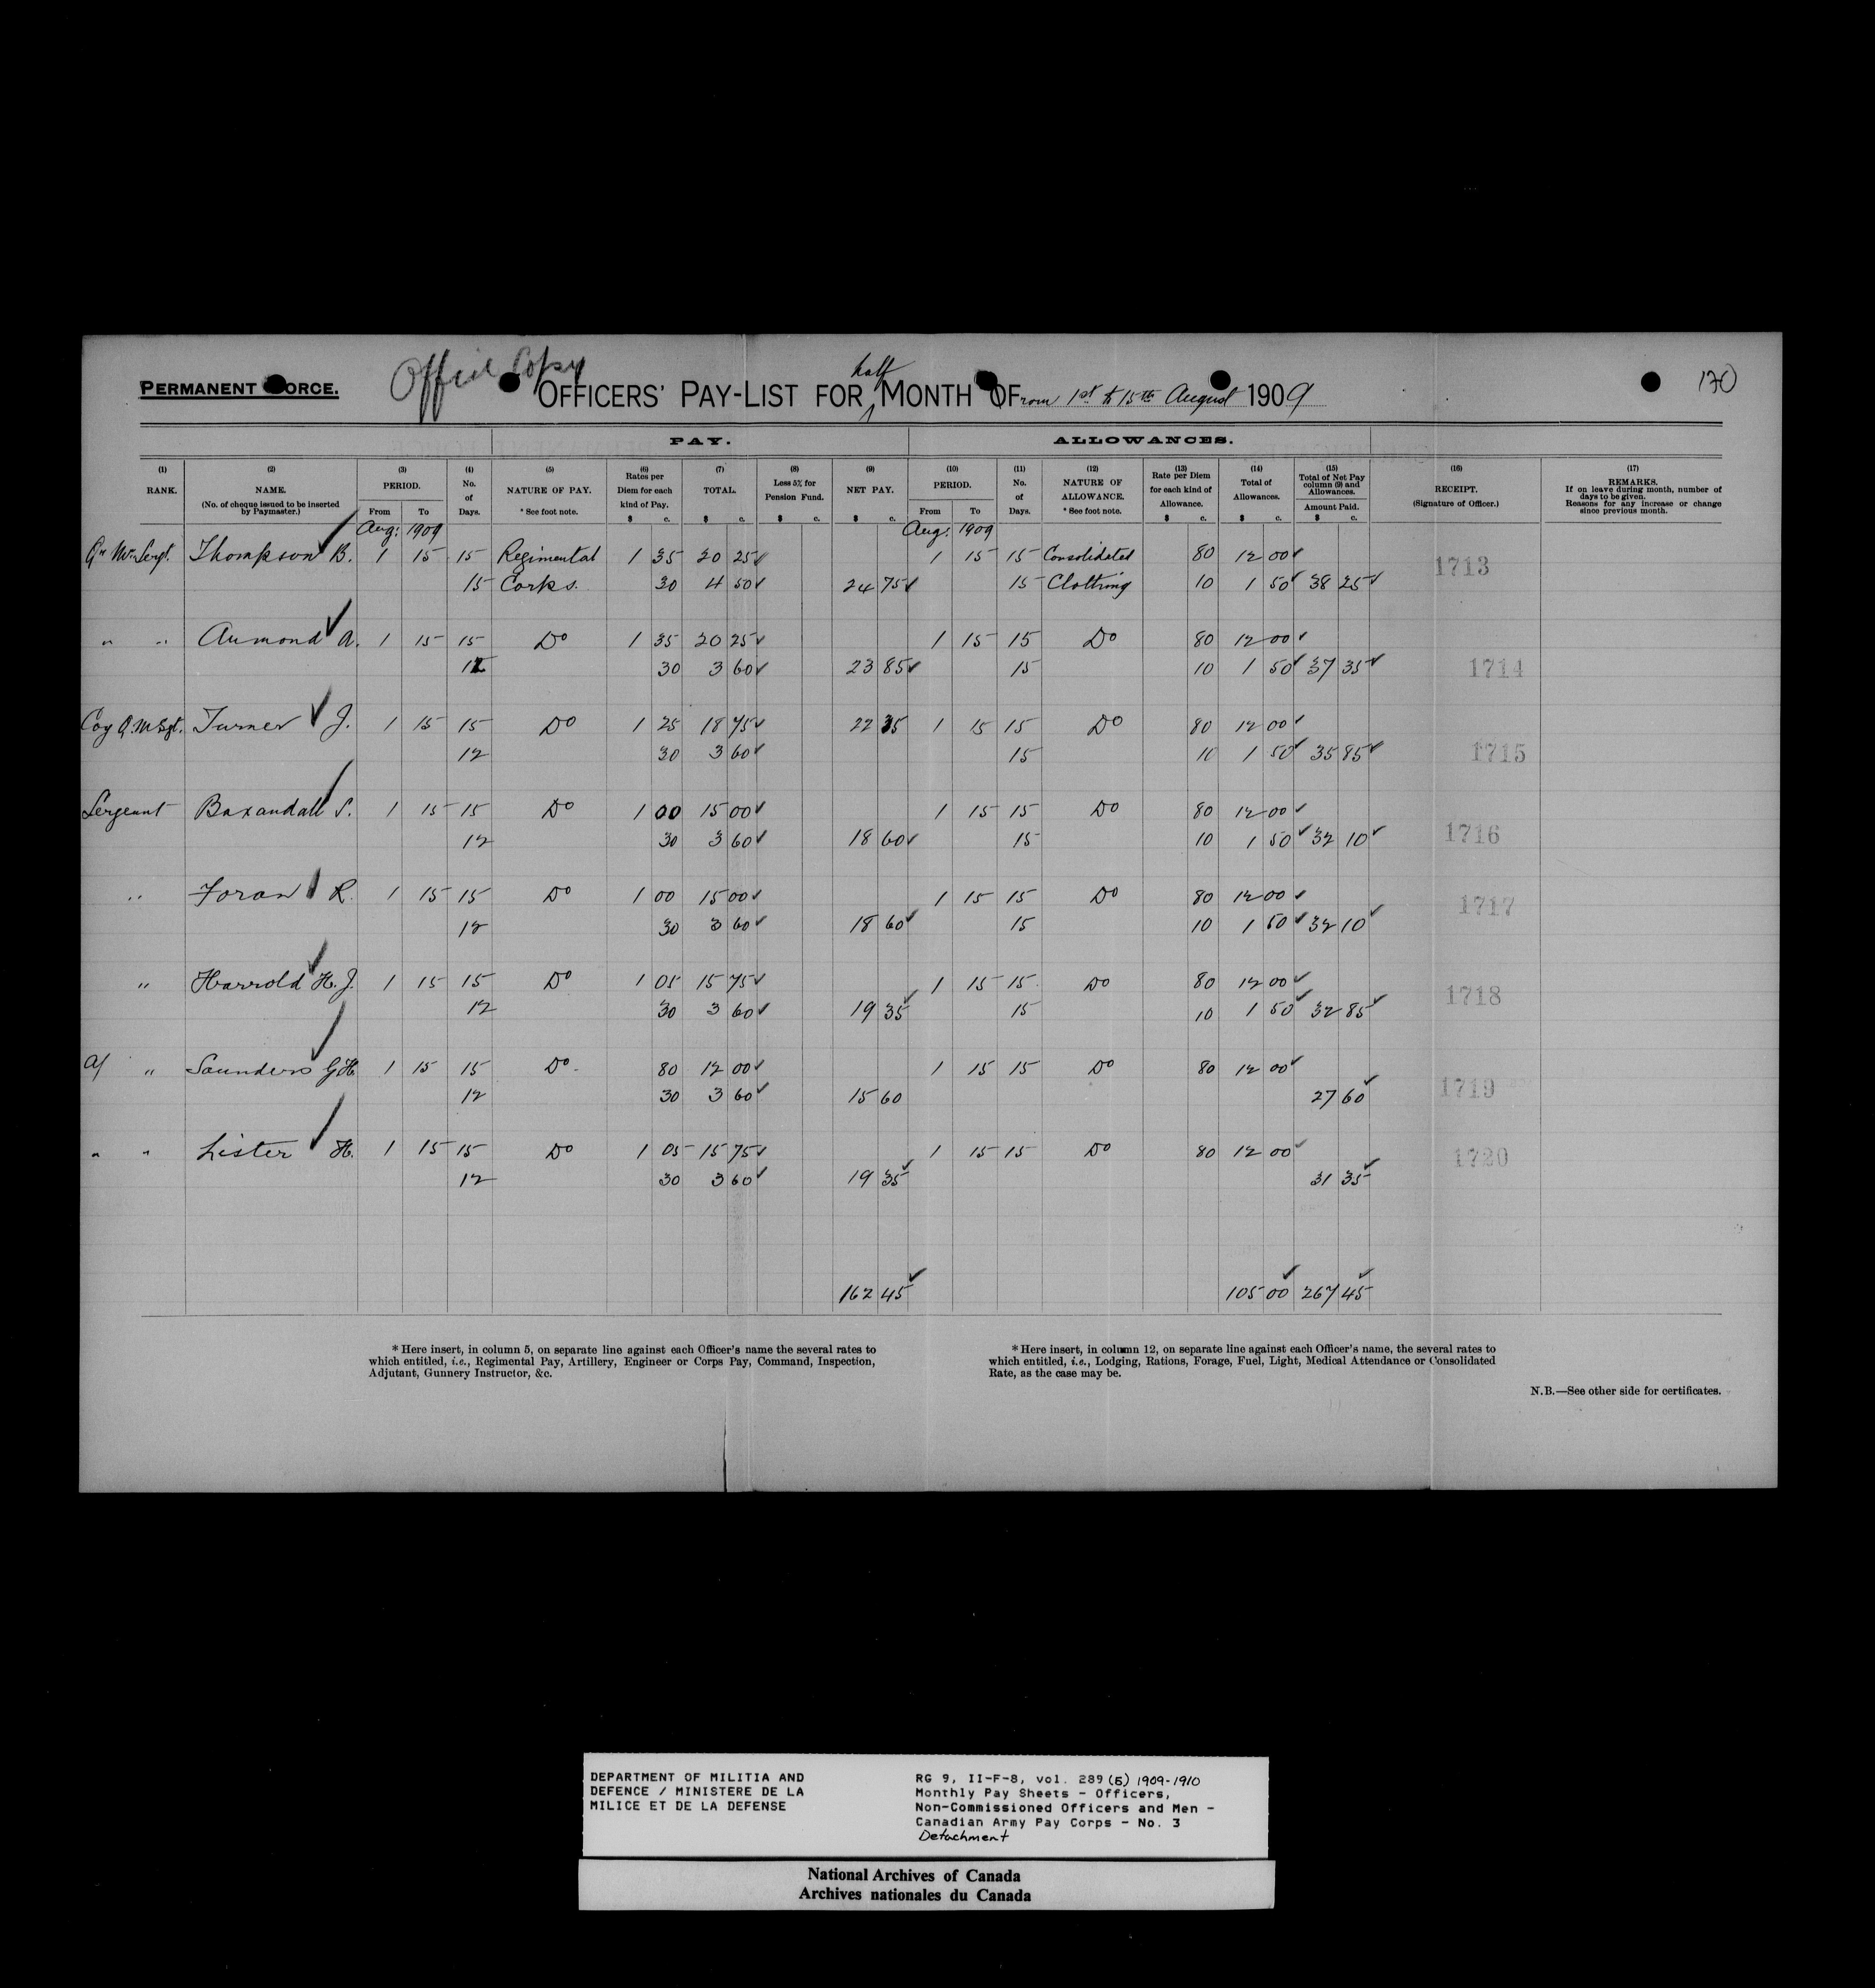 Office Copy
PERMANENT FORCE.
OFFICERS' PAY-LIST FOR half MONTH OF From 1st to 15th August 1909
170
PAY. ALLOWANCES.
(1) RANK. (2) NAME. (No. of cheque issued to be inserted by Paymaster.) (3) PERIOD. From To (4) No. of Days. (5) NATURE OF PAY. * See foot note. (6) Rates per Diem for each kind of Pay. $ c. (7) TOTAL. $ c. (8) Less 5% for Pension Fund. $ c. (9) NET PAY. $ c. (10) PERIOD. From To (11) No. of Days. (12) NATURE OF ALLOWANCE. * See foot note. (13) Rate per Diem for each kind of Allowance. $ c. (14) Total of Allowances. $ c. (15) Total of Net Pay column (9) and Allowances. Amount Paid. $ c. (16) RECEIPT. (Signature of Officer.) (17) REMARKS. If on leave during month, number of days to be given. Reasons for any increase or change since previous month.
Aug: 1909 Aug: 1909
Qr Mr Sergt. Thompson B. 1 15 15 Regimental 1 35 20 25 1 15 15 Consolidated 80 12 00 1713
15 Corps. 30 4 50 24 75 15 Clothing 10 1 50 38 25
" " Aumond A. 1 15 15 Do 1 35 20 25 1 15 15 Do 80 12 00
12 30 3 60 23 85 15 10 1 50 37 35 1714
Coy Q.M Sgt. Turner J. 1 15 15 Do 1 25 18 75 22 35 1 15 15 Do 80 12 00
12 30 3 60 15 10 1 50 35 85 1715
Sergeant Baxandall S. 1 15 15 Do 1 00 15 00 1 15 15 Do 80 12 00
12 30 3 60 18 60 15 10 1 50 32 10 1716
" Foran R. 1 15 15 Do 1 00 15 00 1 15 15 Do 80 12 00 1717
12 30 3 60 18 60 15 10 1 50 32 10
" Harrold H. J. 1 15 15 Do 1 05 15 75 1 15 15 Do 80 12 00 1718
12 30 3 60 19 35 15 10 1 50 32 85
A/ " Saunders G H. 1 15 15 Do 80 12 00 1 15 15 Do 80 12 00
12 30 3 60 15 60 27 60 1719
" " Lister H. 1 15 15 Do 1 05 15 75 1 15 15 Do 80 12 00 1720
12 30 3 60 19 35 31 35
162 45 105 00 267 45
* Here insert, in column 5, on separate line against each Officer's name the several rates to
which entitled, i.e., Regimental Pay, Artillery, Engineer or Corps Pay, Command, Inspection,
Adjutant, Gunnery Instructor, &c.
* Here insert, in column 12, on separate line against each Officer's name, the several rates to
which entitled, i.e., Lodging, Rations, Forage, Fuel, Light, Medical Attendance or Consolidated
Rate, as the case may be.
N.B.—See other side for certificates.
DEPARTMENT OF MILITIA AND
DEFENCE / MINISTERE DE LA
MILICE ET DE LA DEFENSE
RG 9, II-F-8, vol. 289 (5) 1909-1910
Monthly Pay Sheets - Officers,
Non-Commissioned Officers and Men -
Canadian Army Pay Corps - No. 3
Detachment
National Archives of Canada
Archives nationales du Canada